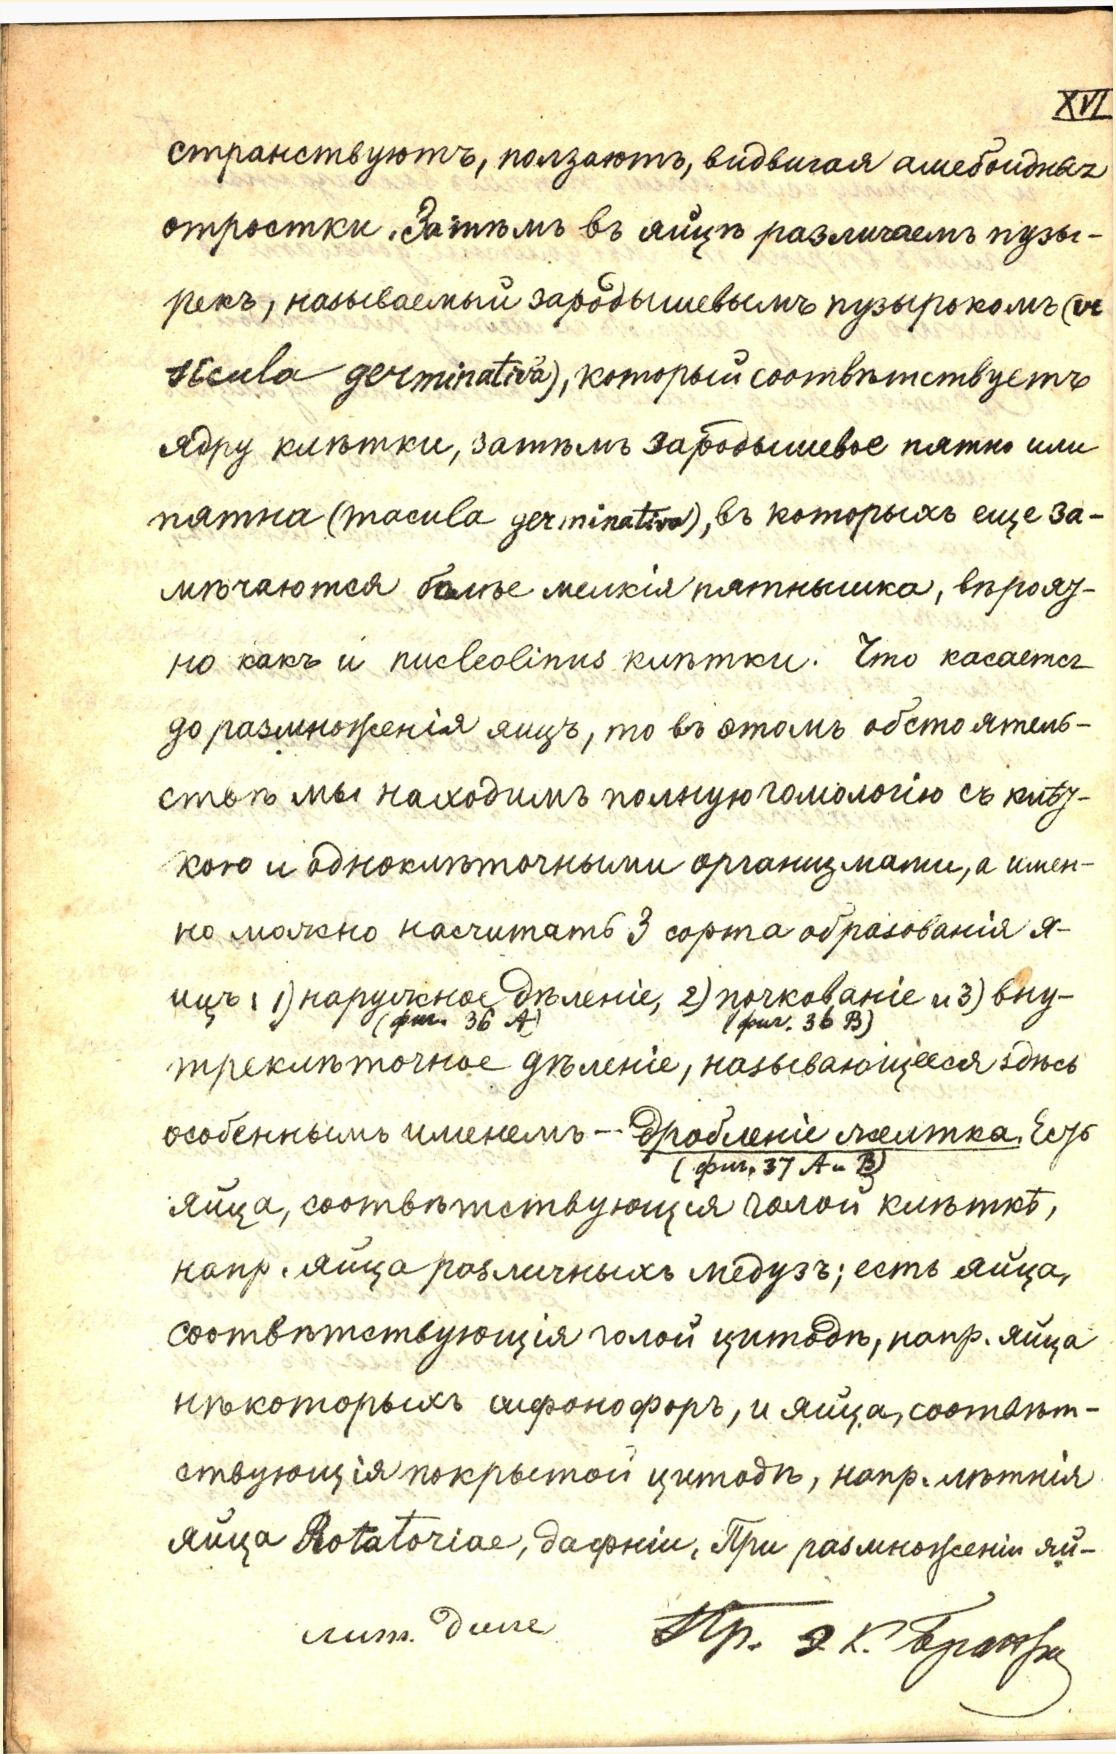 XVI
странствуютъ, ползаютъ, видвигая амебоидныя
отростки. Затѣмъ въ яйцѣ различаемъ пузы-
рекъ, называемый зародышевымъ пузырькомъ (ve
sicula germinativa), который соотвѣтствуетъ
ядру клѣтки, затѣмъ зародышевое пятно или
пятна (macula germinativa), въ которыхъ еще за-
мѣчаются болѣе мелкія пятнышка, вѣроят-
но какъ и nucleolinus клѣтки. Что касается
до размноженія яицъ, то въ этомъ обстоятель-
ствѣ мы находимъ полную гомологію съ клѣт-
кою и одноклѣточными организмами, а имен-
но можно насчитать 3 сорта образованія я-
ицъ: 1) наружное дѣленіе, 2) почкованіе и 3) вну-
(фиг. 36 A) (фиг. 36 B)
треклѣточное дѣленіе, называющееся здѣсь
особеннымъ именемъ — дробленіе желтка. Есть
(фиг. 37 A и B)
яйца, соотвѣтствующія голой клѣткѣ,
напр. яйца различныхъ медузъ; есть яйца,
соотвѣтствующія голой цитодѣ, напр. яйца
нѣкоторыхъ сифонофоръ, и яйца, соотвѣт-
ствующія покрытой цитодѣ, напр. лѣтнія
яйца Rotatoriae, дафніи. При размноженіи яй-
лит. Пр. Э. К. Брандт